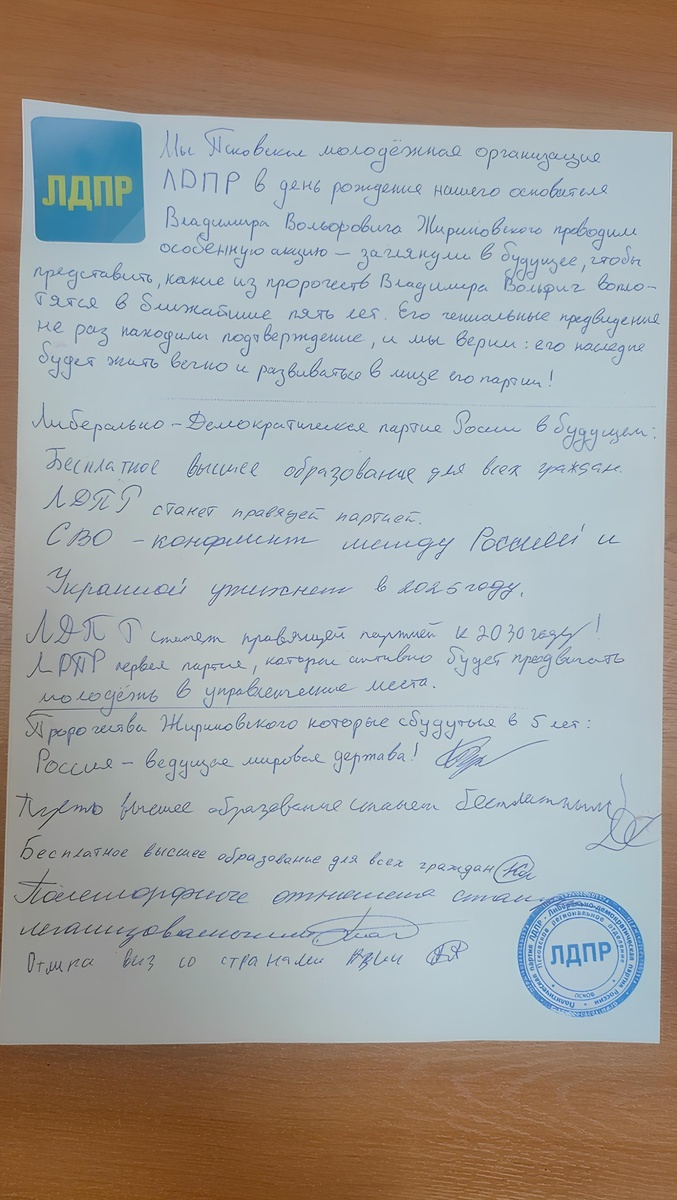 ЛДПР
Мы Псковская молодёжная организация
ЛДПР в день рождения нашего основателя
Владимира Вольфовича Жириновского проводим
особенную акцию — заглянули в будущее, чтобы
представить, какие из пророчеств Владимира Вольфич вопло-
тятся в ближайшие пять лет. Его гениальные предвидения
не раз находили подтверждение, и мы верим: его наследие
будет жить вечно и развиваться в лице его партии!
Либерально-Демократическая партия России в будущем:
Бесплатное высшее образование для всех граждан.
ЛДПР станет правящей партией.
СВО - конфликт между Россией и
Украиной в 2025 году.
ЛДПР станет правящей партией к 2030 году!
ЛДПР первая партия, которая активно будет продвигать
молодёжь в управленческие места.
Пророчества Жириновского которые сбудутся в 5 лет:
Россия - ведущая мировая держава!
Пусть высшее образование станет бесплатным!
Бесплатное высшее образование для всех граждан
отношения
Отмена виз со странами Азии
Политическая партия ЛДПР - Либерально-демократическая партия России
Псковское региональное отделение
ЛДПР